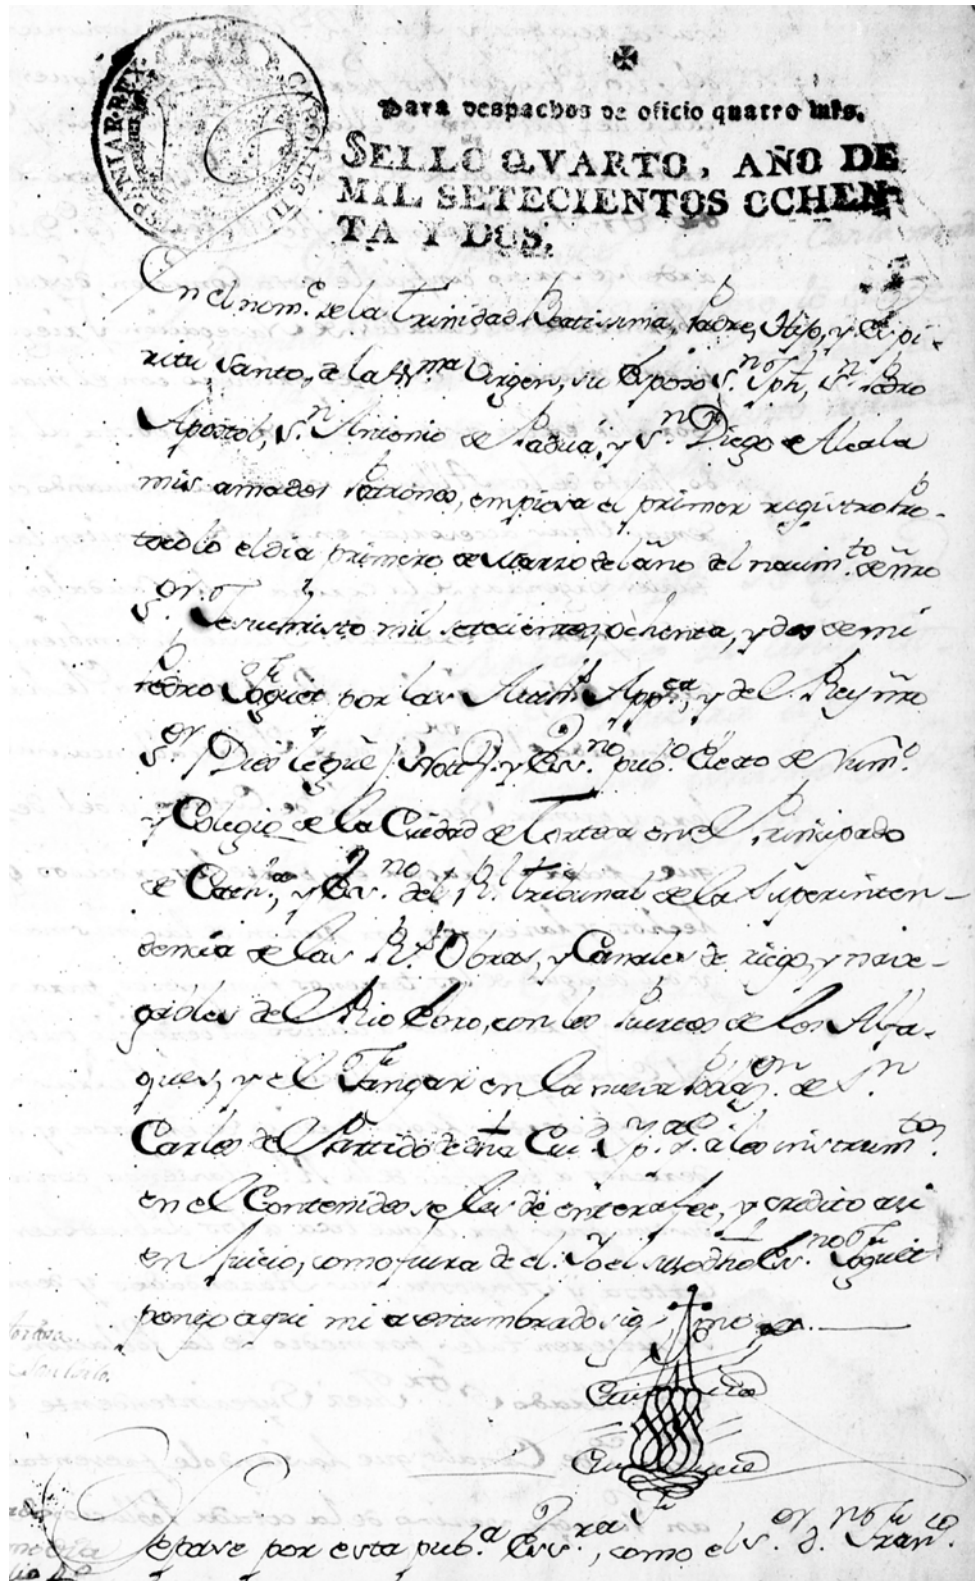 HISPANIAR·REX· CAROLUS·III·D·G·
✠
Para despachos de oficio quatro mrs.
SELLO QVARTO, AÑO DE
MIL SETECIENTOS OCHEN-
TA Y DOS.
En el nom.e de la Trinidad Beatissima, Padre, Hijo, y Espi-
ritu Santo, de la Virgen, su Esposo S.n Jph, S.n Pedro
Apostol, S.n Antonio de Padua, y S.n Diego de Alcala
mis amados Patronos, empiesa el primer registro Pro-
tocolo el dia primero de Marzo del año del nacim.to de nro
S.or Jesuchristo mil setecientos, ochenta, y dos de mi
Pedro por las App.ca, y del Rey ñro
S.or (Dios le gûe) Not. y Ess.no pub.co de Num.o
y Colegio de la Ciudad de Tortosa en el Principado
de Catñ.a, y Ess.no del R.l Tribunal de la Superinten-
dencia de las R.s Obras, y Canales de riego, y nave-
gables del Rio Ebro, con los Puertos de los Alfa-
ques, y el Fangar en la nueva Pobla.on de S.n
Carlos del Partido de dña Ciu.d, y p.a q.e á los instrum.tos
en el Contenidos se les dé entera fee, y credito asi
en Juicio, como fuera de el. Yo el susodho Ess.no
pongo aqui mi acostumbrado sig no
Tortosa.
Sepase por esta pub.ca Ess.ra, como el S.or D. Fran.co